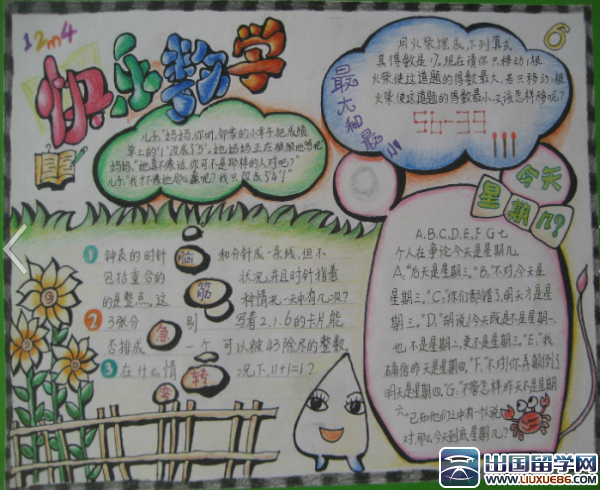 12m4
快乐数学
儿子:"妈妈,你听,邻带的小辛子把成绩
单上的"1"改成了"3",她妈妈正在狠狠地骂她
妈妈:"她真不像话,你可不是那样的人对吧?"
儿子:"我才不像他那么蠢呢?我只改成了"4"!"
6
用火柴埋成,下列算式
其得数是17,现在请你只移动1根
火柴使这道题的得数最大,若只移动1根
火柴使这道题的得数最小,又该怎样移呢?
56-39
最大和最小
今天
星期几?
A,B,C,D,E,F,G七
个人在争论今天是星期几
A."后天是星期三."B."不对,今天是
星期三."C."你们都错了,明天才是星
期三."D."胡说!今天既是不是星期一,
也,不是星期二,更不是星期三,"E."我
确信昨天是星期四."F."不对!你弄颠倒了
明天是星期四.G:"不管怎样昨天不是星期
六."
已知他们之中有一个说
对,那么今天到底星期几?
脑筋急转弯
1 钟表的时针 和分针成一条线,但不
包括重合的 状况,并且时针指着
的是整点,这 种情况一天中有几次?
2 3张分 别 写着2.1.6的卡片,能
否排成 一个 可以被43除尽的整数
3 在什么情 况下,11+1=1?
9
8
出国留学网
LIUXUE86.COM